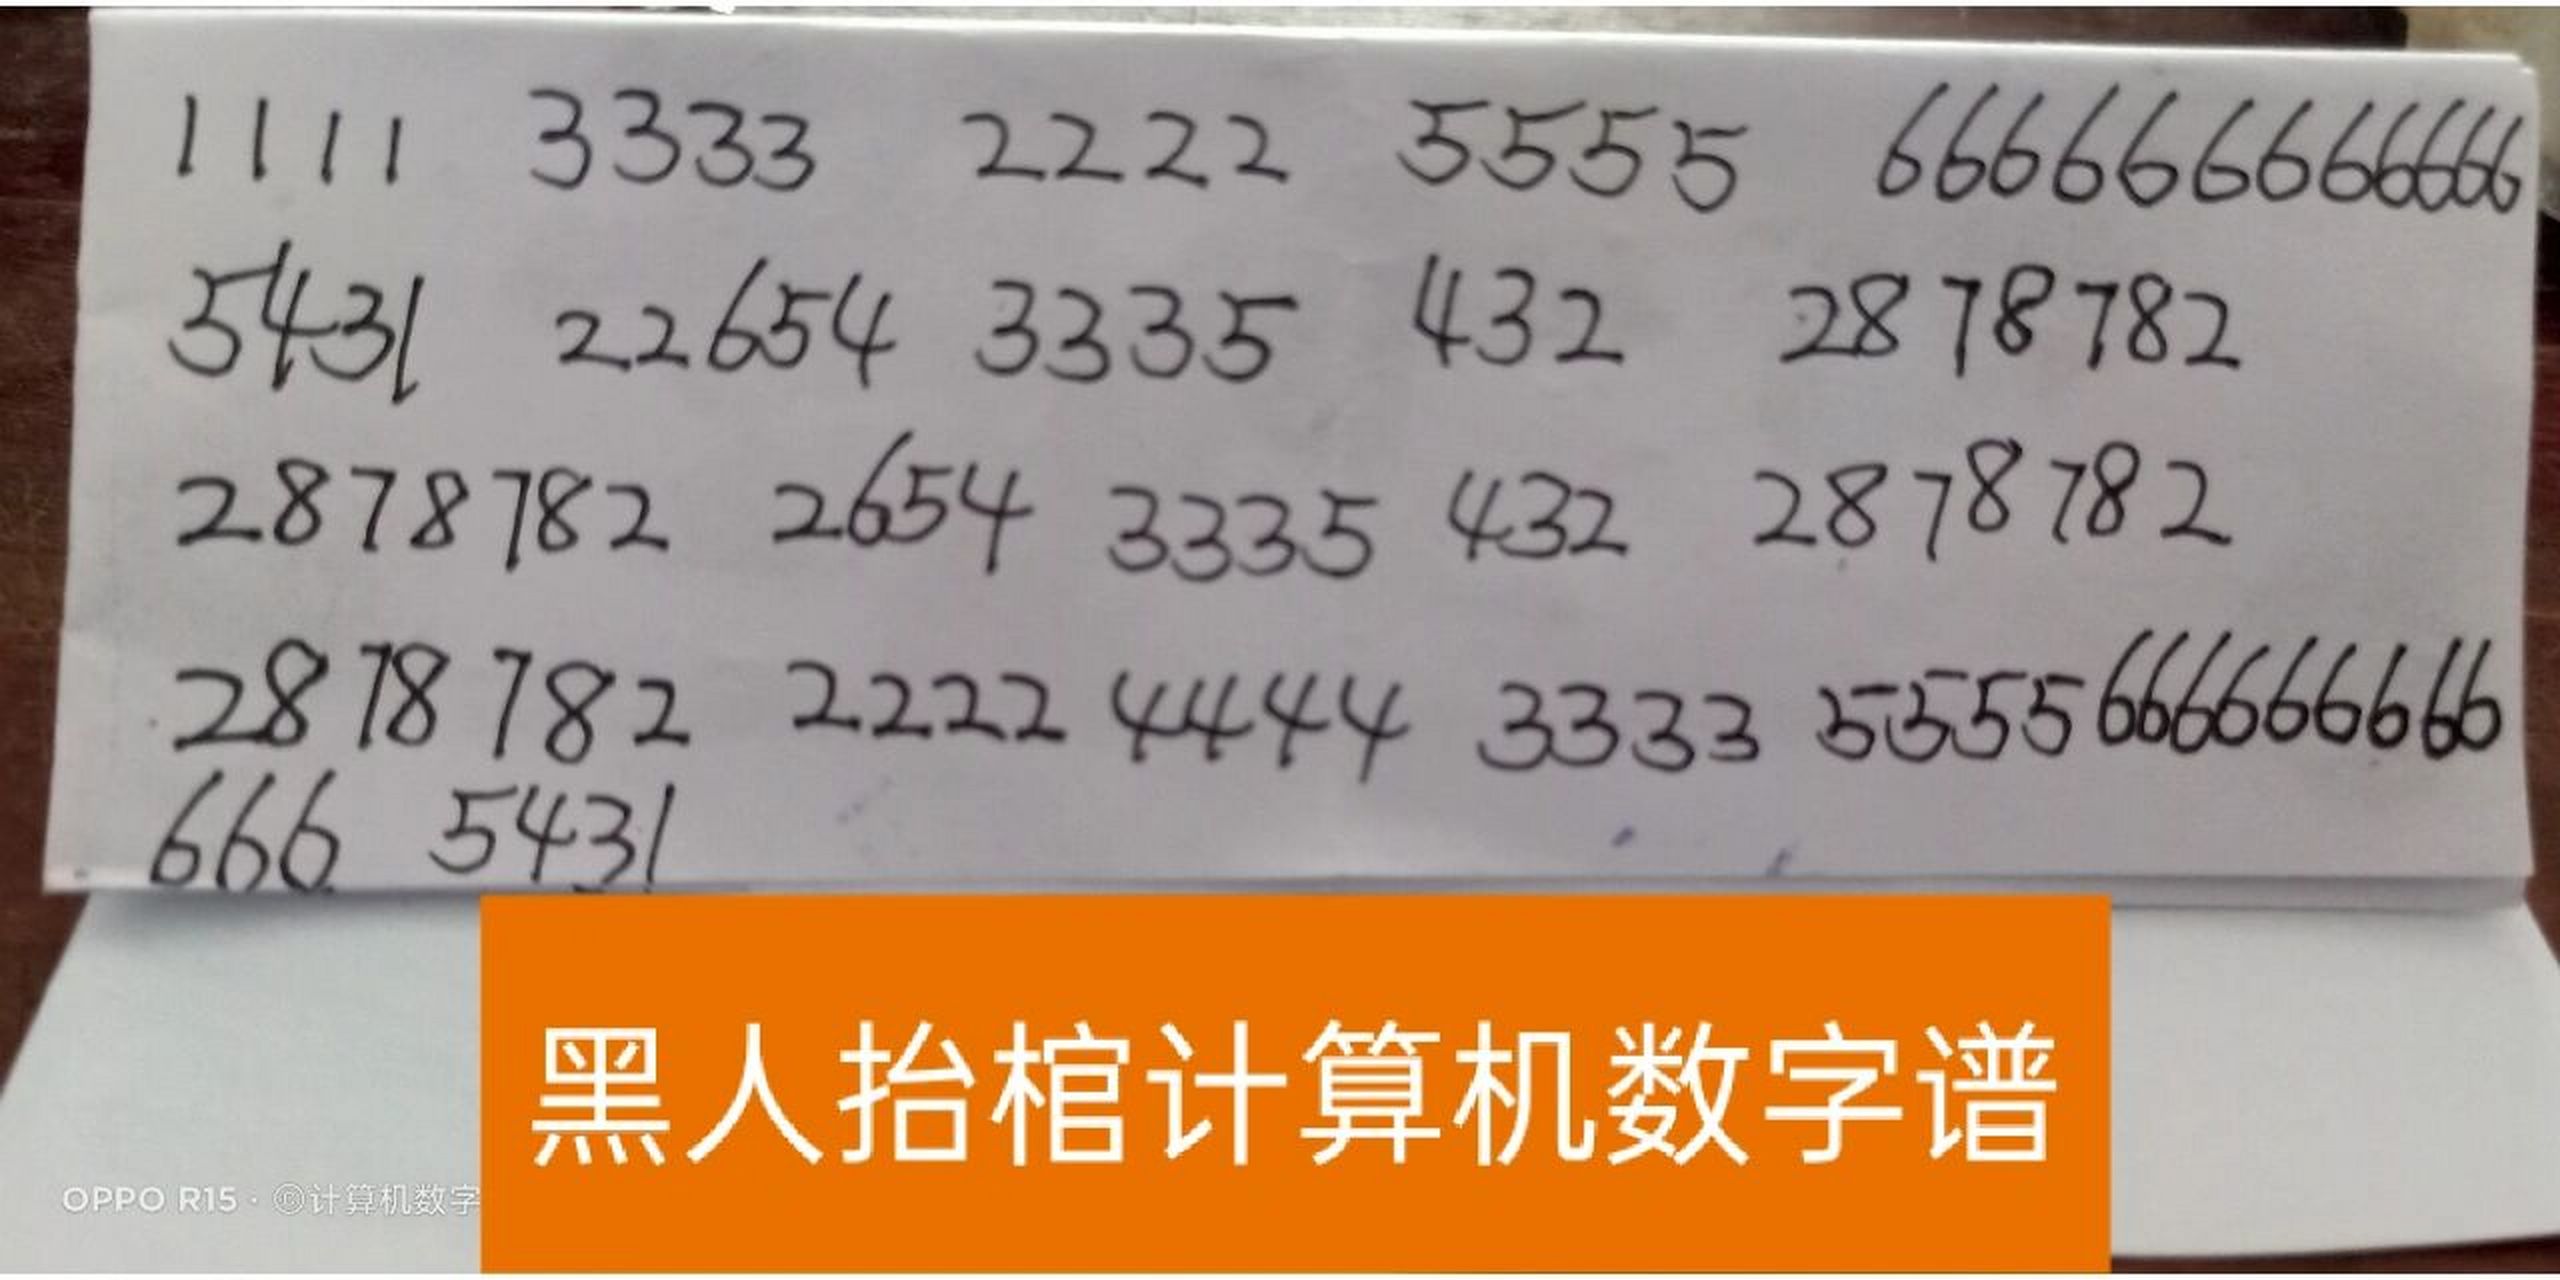 1111 3333 2222 5555 666666666666
5431 22654 3335 432 2878782
2878782 2654 3335 432 2878782
2878782 2222 4444 3333 5555 666666666
666 5431
黑人抬棺计算机数字谱
OPPO R15 · ©计算机数字